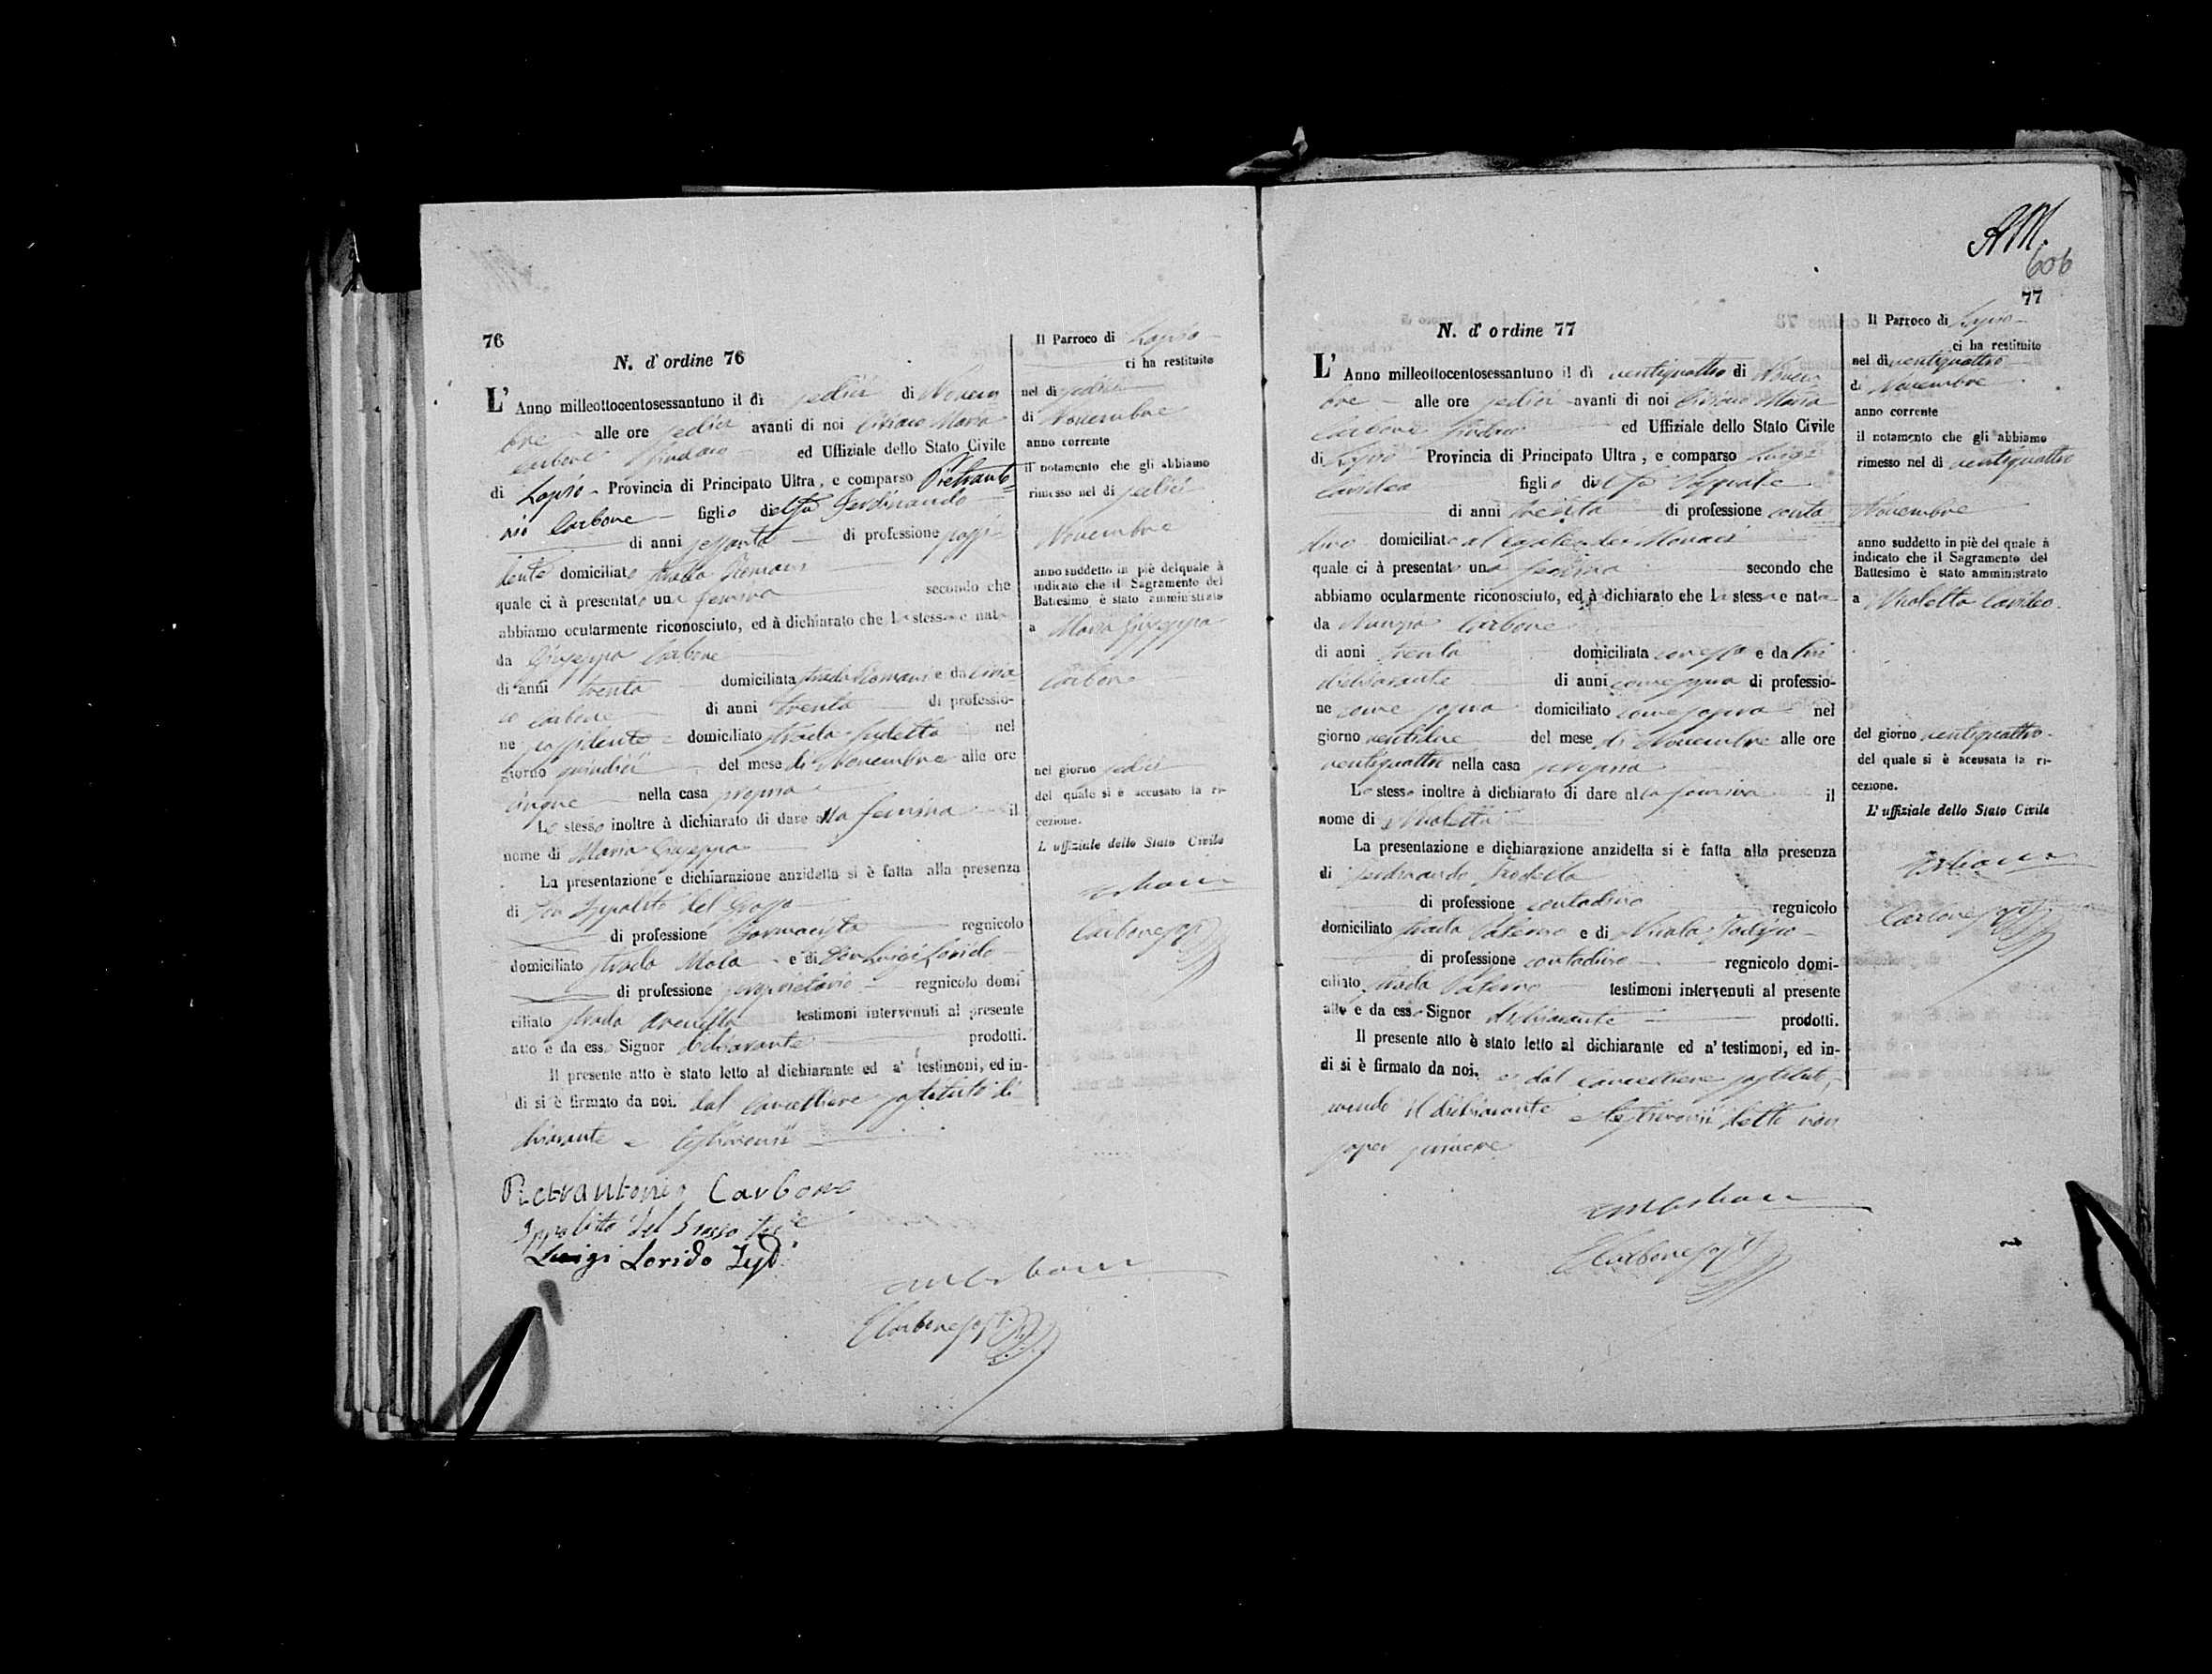 76
N. d' ordine 76
L' Anno milleottocentosessantuno il dì sedici di Novem
bre alle ore sedici avanti di noi Ciriaco Maria
Carbone Sindaco ed Uffiziale dello Stato Civile
di Lapio Provincia di Principato Ultra, e comparso Pietranto=
nio Carbone figlio del fu Ferdinando
di anni sessanta di professione possi
dente domiciliato strada
quale ci à presentato una femina secondo che
abbiamo ocularmente riconosciuto, ed à dichiarato che la stessa e nata
da Giuseppa Carbone
di anni trenta domiciliata strada e da Ciria
co Carbone di anni trenta di professio-
ne possidente domiciliato strada sudetta nel
giorno quindici del mese di Novembre alle ore
cinque nella casa propria
Lo stesso inoltre à dichiarato di dare alla femina il
nome di Maria Giuseppa
La presentazione e dichiarazione anzidetta si è fatta alla presenza
di Don Ippolito del Grosso
di professione Farmacista regnicolo
domiciliato strada Mola e di Don Luigi Lorido
di professione proprietario regnicolo domi
ciliato strada testimoni intervenuti al presente
atto e da esso Signor dichiarante prodotti.
Il presente atto è stato letto al dichiarante ed a' testimoni, ed in-
di si è firmato da noi. dal Cancelliere sostituto di
chiarante e testimonii
Pietrantonio Carbone
Ippolito del Grosso
Luigi Lorido
Il Parroco di Lapio
ci ha restituito
nel dì sedici
di Novembre
anno corrente
il notamento che gli abbiamo
rimesso nel di sedici
Novembre
anno suddetto in piè del quale à
indicato che il Sagramento del
Battesimo è stato amministrato
a Maria Giuseppa
Carbone
nel giorno sedici
del quale si è accusato la ri-
cezione.
L' uffiziale dello Stato Civile
AM.
606
77
N. d' ordine 77
L' Anno milleottocentosessantuno il dì ventiquattro di Novem
bre alle ore sedici avanti di noi Ciriaco Maria
Carbone Sindaco ed Uffiziale dello Stato Civile
di Lapio Provincia di Principato Ultra, e comparso Luigi
figlio del fu Pasquale
di anni trenta di professione conta
dino domiciliato
quale ci à presentato una femina secondo che
abbiamo ocularmente riconosciuto, ed à dichiarato che la stessa e nata
da Nunzia Carbone
di anni trenta domiciliata con esso e da
dichiarante di anni come sopra di professio-
ne come sopra domiciliato come sopra nel
giorno ventidue del mese di Novembre alle ore
ventiquattro nella casa propria
Lo stesso inoltre à dichiarato di dare alla femina il
nome di Nicoletta
La presentazione e dichiarazione anzidetta si è fatta alla presenza
di Ferdinando
di professione contadino regnicolo
domiciliato strada Paterno e di Nicola
di professione contadino regnicolo domi-
ciliato strada Paterno testimoni intervenuti al presente
atto e da esso Signor dichiarante prodotti.
Il presente atto è stato letto al dichiarante ed a' testimoni, ed in-
di si è firmato da noi. e dal Cancelliere sostituto,
avendo il dichiarante e testimonii detto non
saper scrivere
Il Parroco di Lapio
ci ha restituito
nel dì ventiquattro
di Novembre
anno corrente
il notamento che gli abbiamo
rimesso nel di ventiquattro
Novembre
anno suddetto in piè del quale à
indicato che il Sagramento del
Battesimo è stato amministrato
a Nicoletta
del giorno ventiquattro
del quale si è accusata la ri-
cezione.
L' uffiziale dello Stato Civile